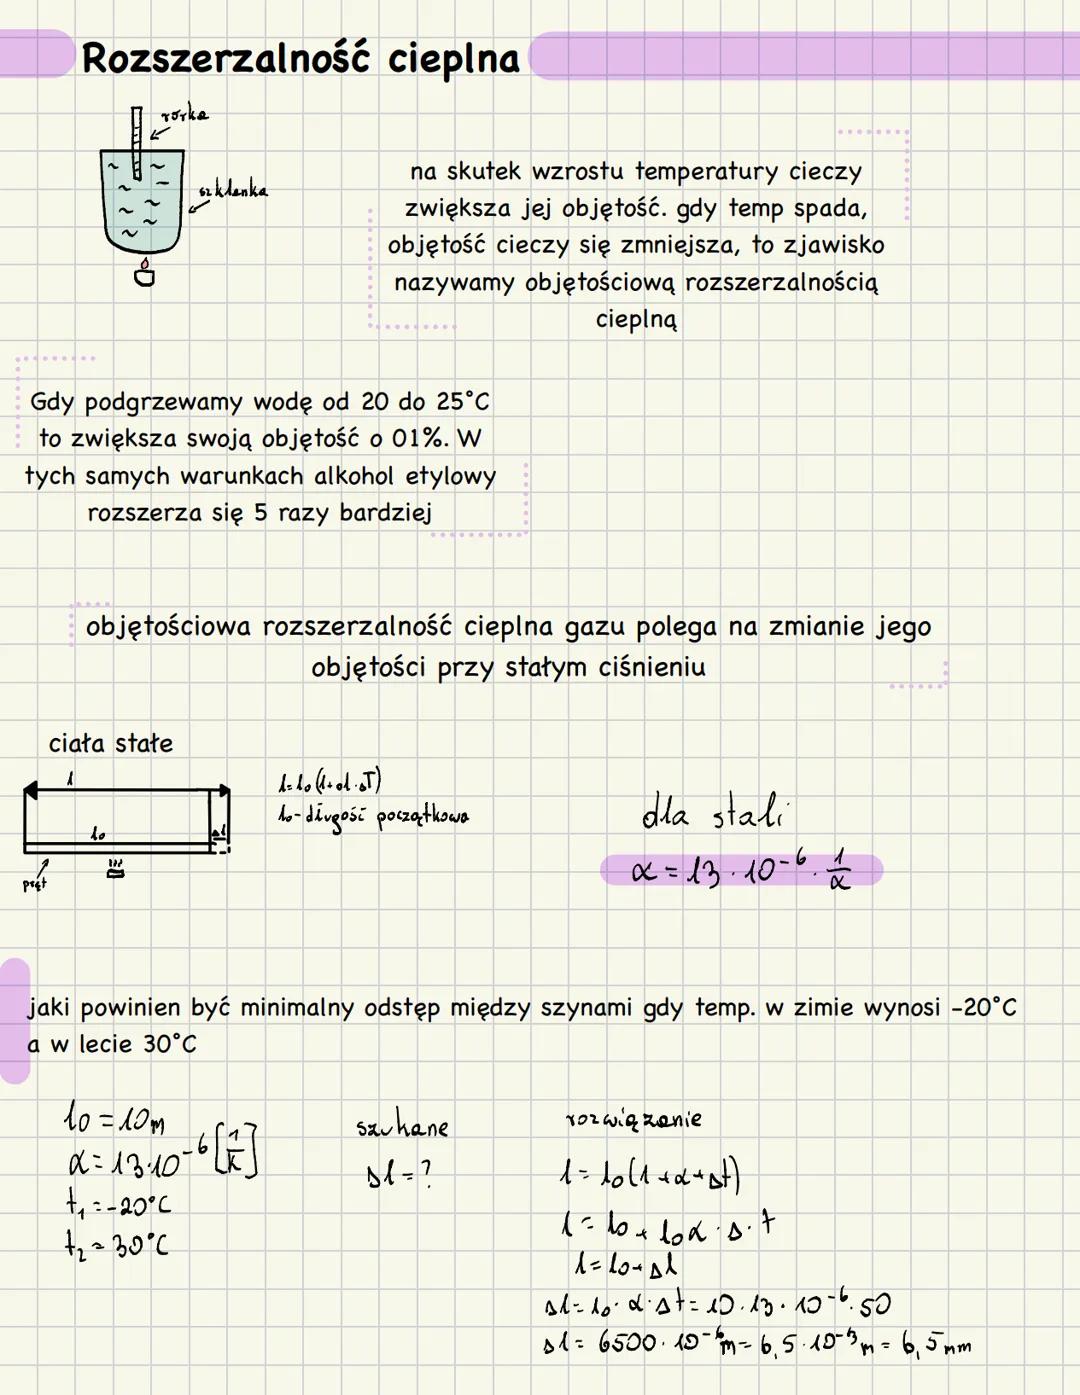 Rozszerzalność cieplna
rórka
szklanka
na skutek wzrostu temperatury cieczy
zwiększa jej objętość. gdy temp spada,
objętość cieczy się zmniejsza, to zjawisko
nazywamy objętościową rozszerzalnością
cieplną
Gdy podgrzewamy wodę od 20 do 25°C
to zwiększa swoją objętość o 01%. W
tych samych warunkach alkohol etylowy
rozszerza się 5 razy bardziej
objętościowa rozszerzalność cieplna gazu polega na zmianie jego
objętości przy stałym ciśnieniu
ciała stałe
l
l₀
Δl
pręt
l=l₀(1+α·ΔT)
l₀-długość początkowa
dla stali
α = 13 · 10⁻⁶ · 1/α
jaki powinien być minimalny odstęp między szynami gdy temp. w zimie wynosi -20°C
a w lecie 30°C
l₀ = 10m
α = 13·10⁻⁶ [1/K]
t₁ = -20°C
t₂ = 30°C
szukane
Δl = ?
rozwiązanie
l = l₀(1+α+Δt)
l = l₀ + l₀α · Δ · t
l = l₀ + Δl
Δl = l₀ · α · Δt = 10 · 13 · 10⁻⁶ · 50
Δl = 6500 · 10⁻⁶m = 6,5 · 10⁻³m = 6,5mm